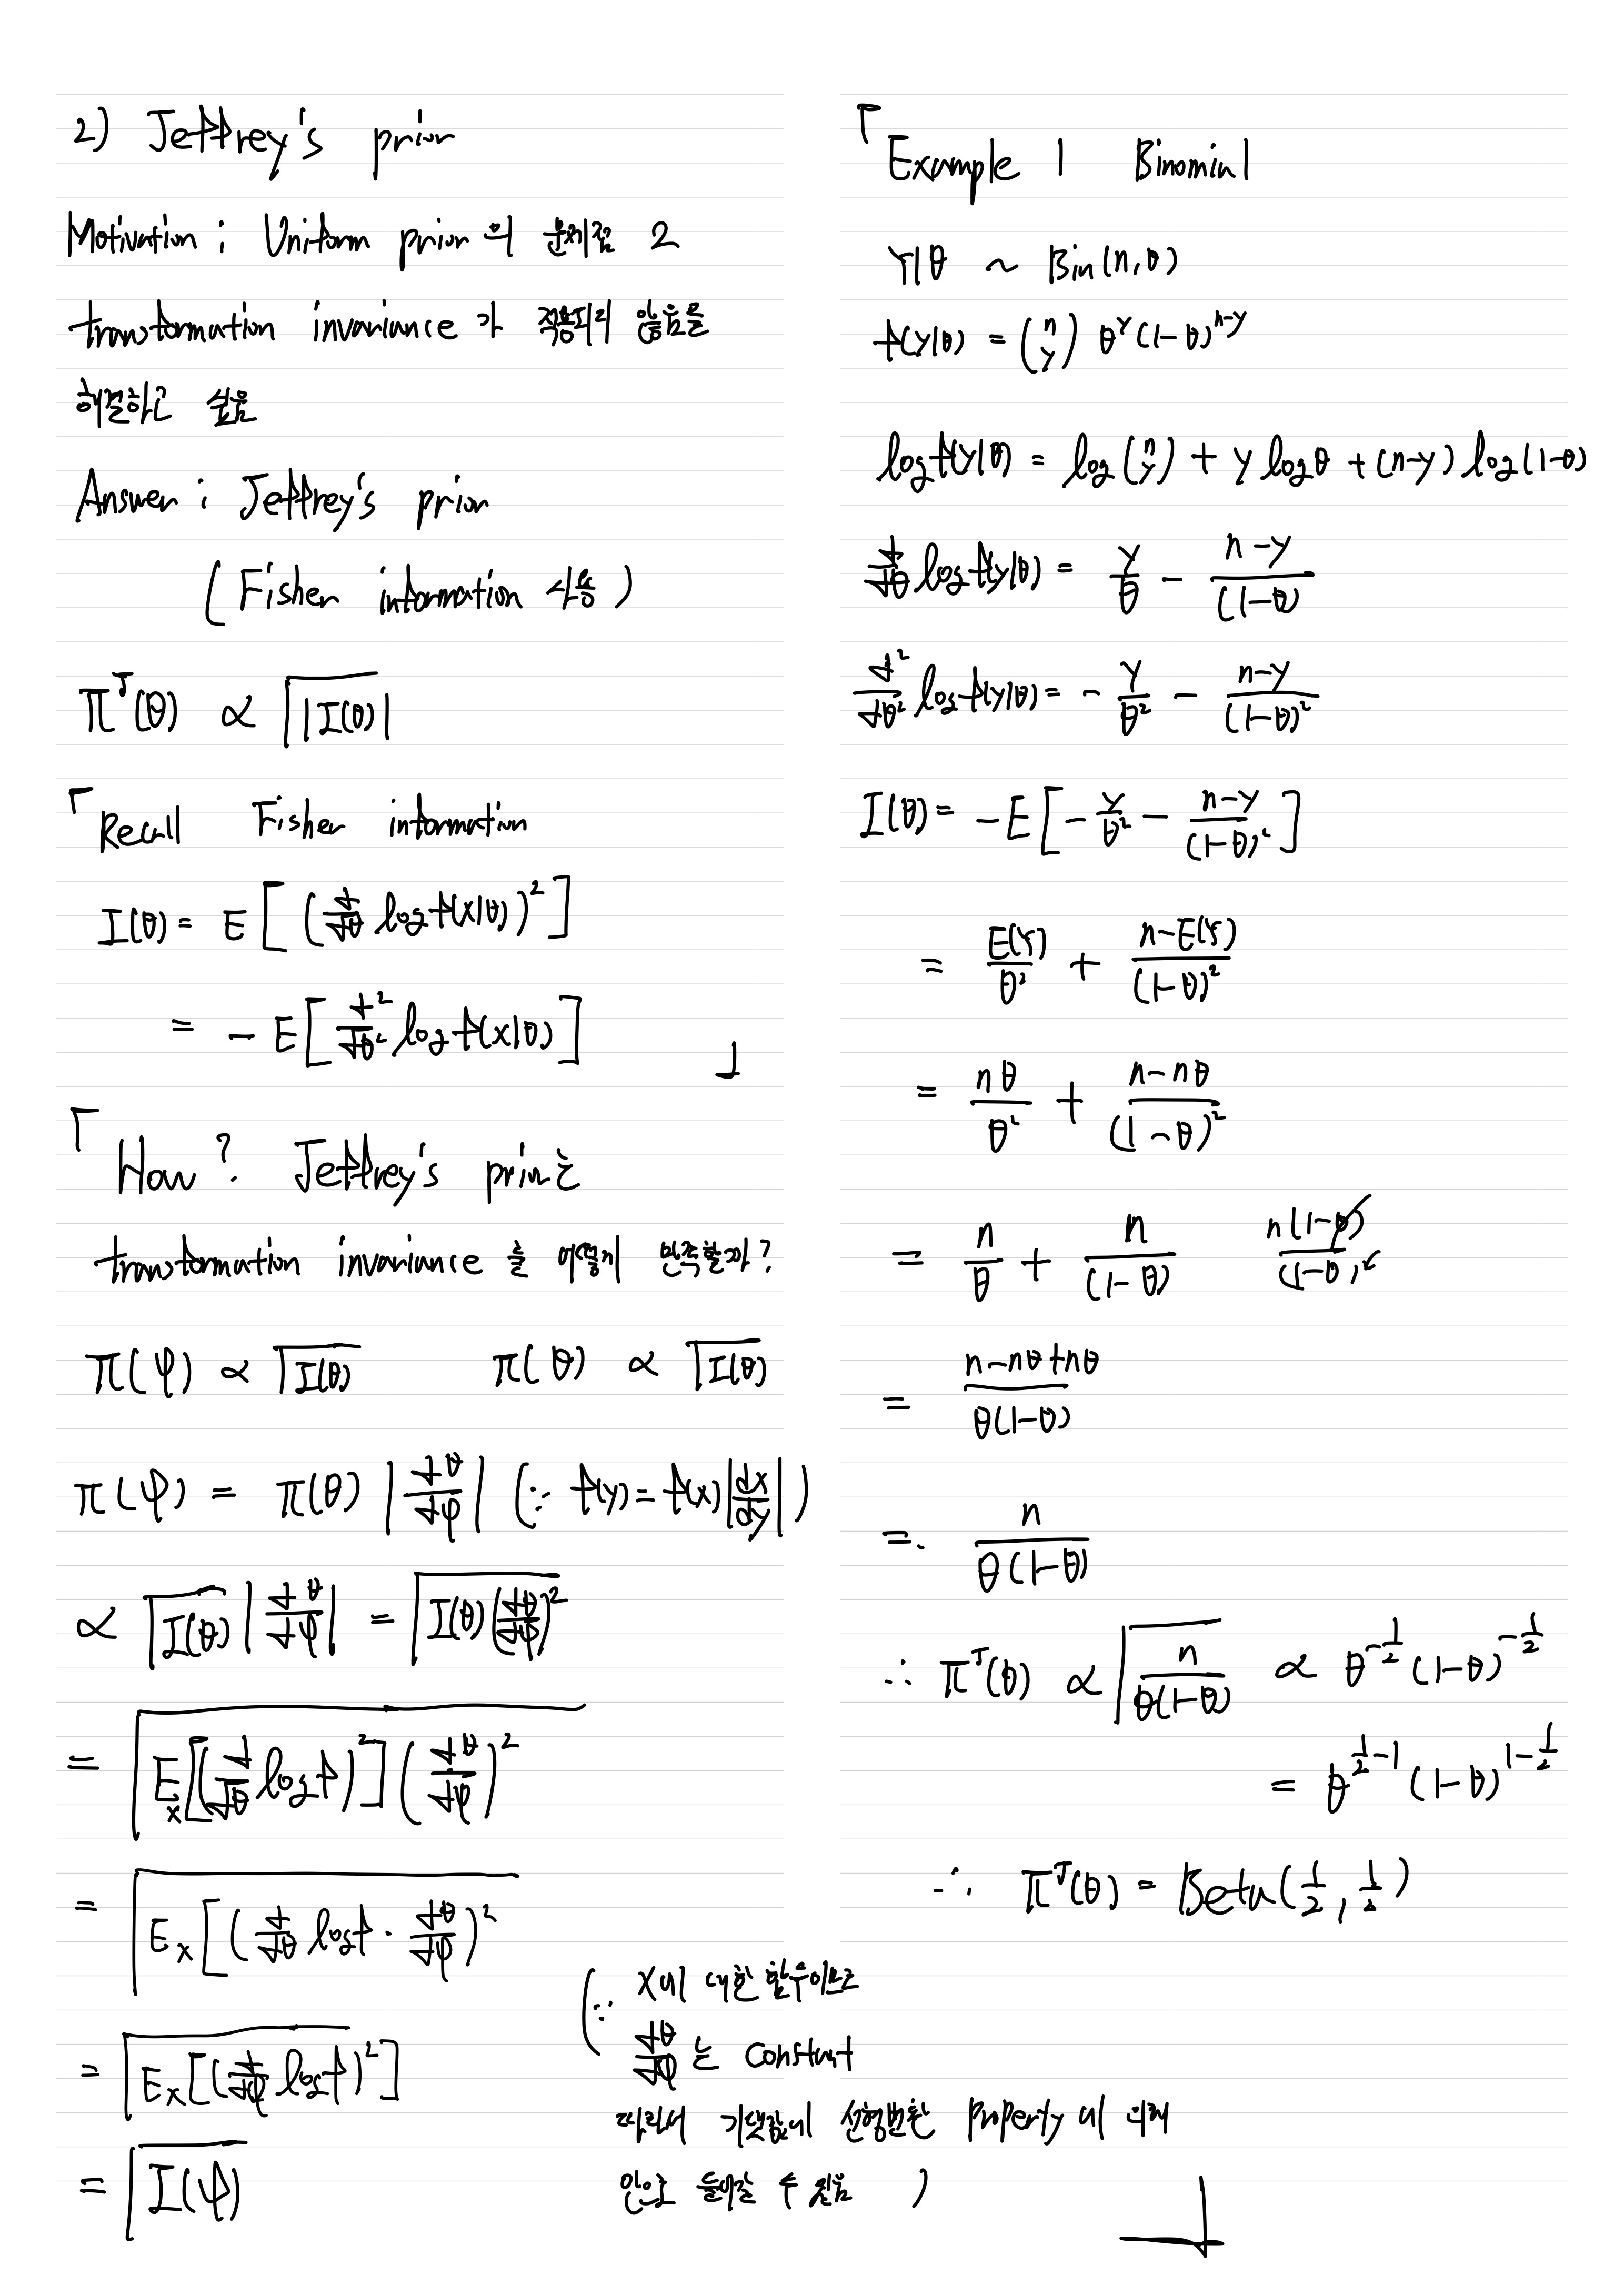 2) Jeffrey's prior
Motivation : Uniform prior의 문제점 2
transformation invariance가 적용되지 않음을
해결하고 싶음
Answer : Jeffrey's prior
( Fisher information 사용 )
π^J(θ) ∝ √|I(θ)|
「Recall Fisher information
I(θ) = E[(d/dθ log f(x|θ))²]
= -E[d²/dθ² log f(x|θ)] 」
「How? Jeffrey's prior는
transformation invariance를 어떻게 만족할까?
π(ψ) ∝ √I(θ) π(θ) ∝ √I(θ)
π(ψ) = π(θ) |dθ/dψ| (∵ f(y) = f(x)|dx/dy|)
∝ √I(θ) |dθ/dψ| = √(I(θ)(dθ/dψ)²)
= √(E_x[(d/dθ log f)²](dθ/dψ)²)
= √(E_x[(d/dθ log f · dθ/dψ)²
= √(E_x[(d/dψ log f)²])
= √I(ψ)
(∵ X에 대한 함수이므로
dθ/dψ 는 constant
따라서 기댓값에 선형변환 property에 의해
안으로 들어갈 수 있음 )
「Example 1 Binominl
Y|θ ~ Bin(n,θ)
f(y|θ) = (n y) θ^y (1-θ)^(n-y)
log f(y|θ) = log(n y) + y log θ + (n-y) log(1-θ)
d/dθ log f(y|θ) = y/θ - (n-y)/(1-θ)
d²/dθ² log f(y|θ) = - y/θ² - (n-y)/(1-θ)²
I(θ) = -E[- y/θ² - (n-y)/(1-θ)²]
= E(Y)/θ² + (n-E(Y))/(1-θ)²
= nθ/θ² + (n-nθ)/(1-θ)²
= n/θ + n/(1-θ) n(1-θ)/(1-θ)²
= (n-nθ+nθ)/(θ(1-θ))
=. n/(θ(1-θ))
∴ π^J(θ) ∝ √(n/(θ(1-θ))) ∝ θ^(-1/2) (1-θ)^(-1/2)
= θ^(1/2-1) (1-θ)^(1-1/2)
∴ π^J(θ) = Beta(1/2, 1/2)
」